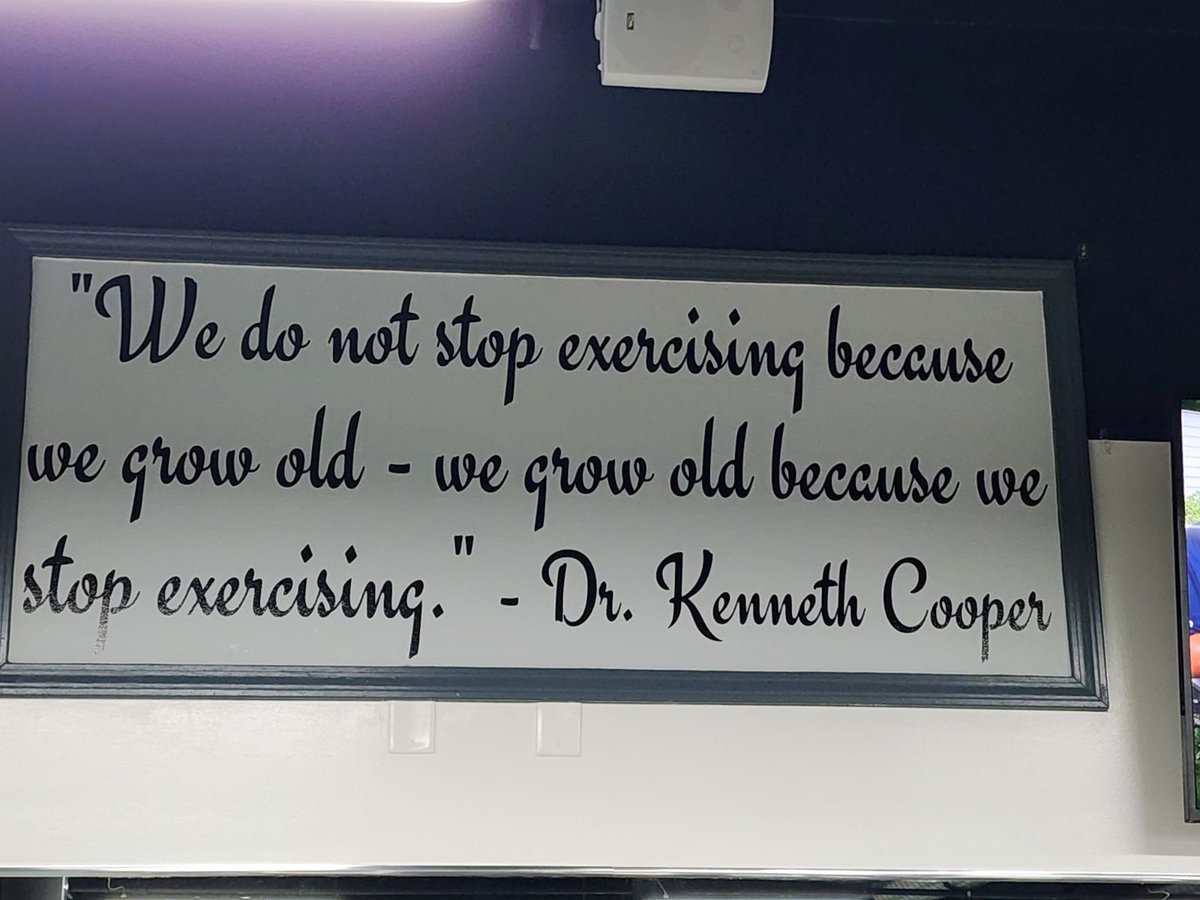 "We do not stop exercising because
we grow old - we grow old because we
stop exercising." - Dr. Kenneth Cooper